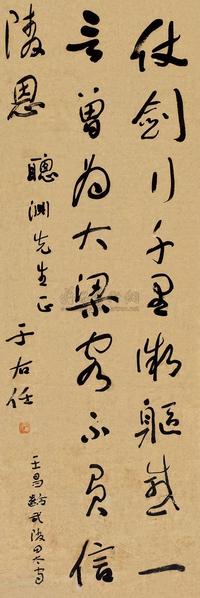 仗劍行千里微軀感一
言曾為大梁客不負信
陵恩
聰淵先生正
于右任
王昌齡武陵田太守